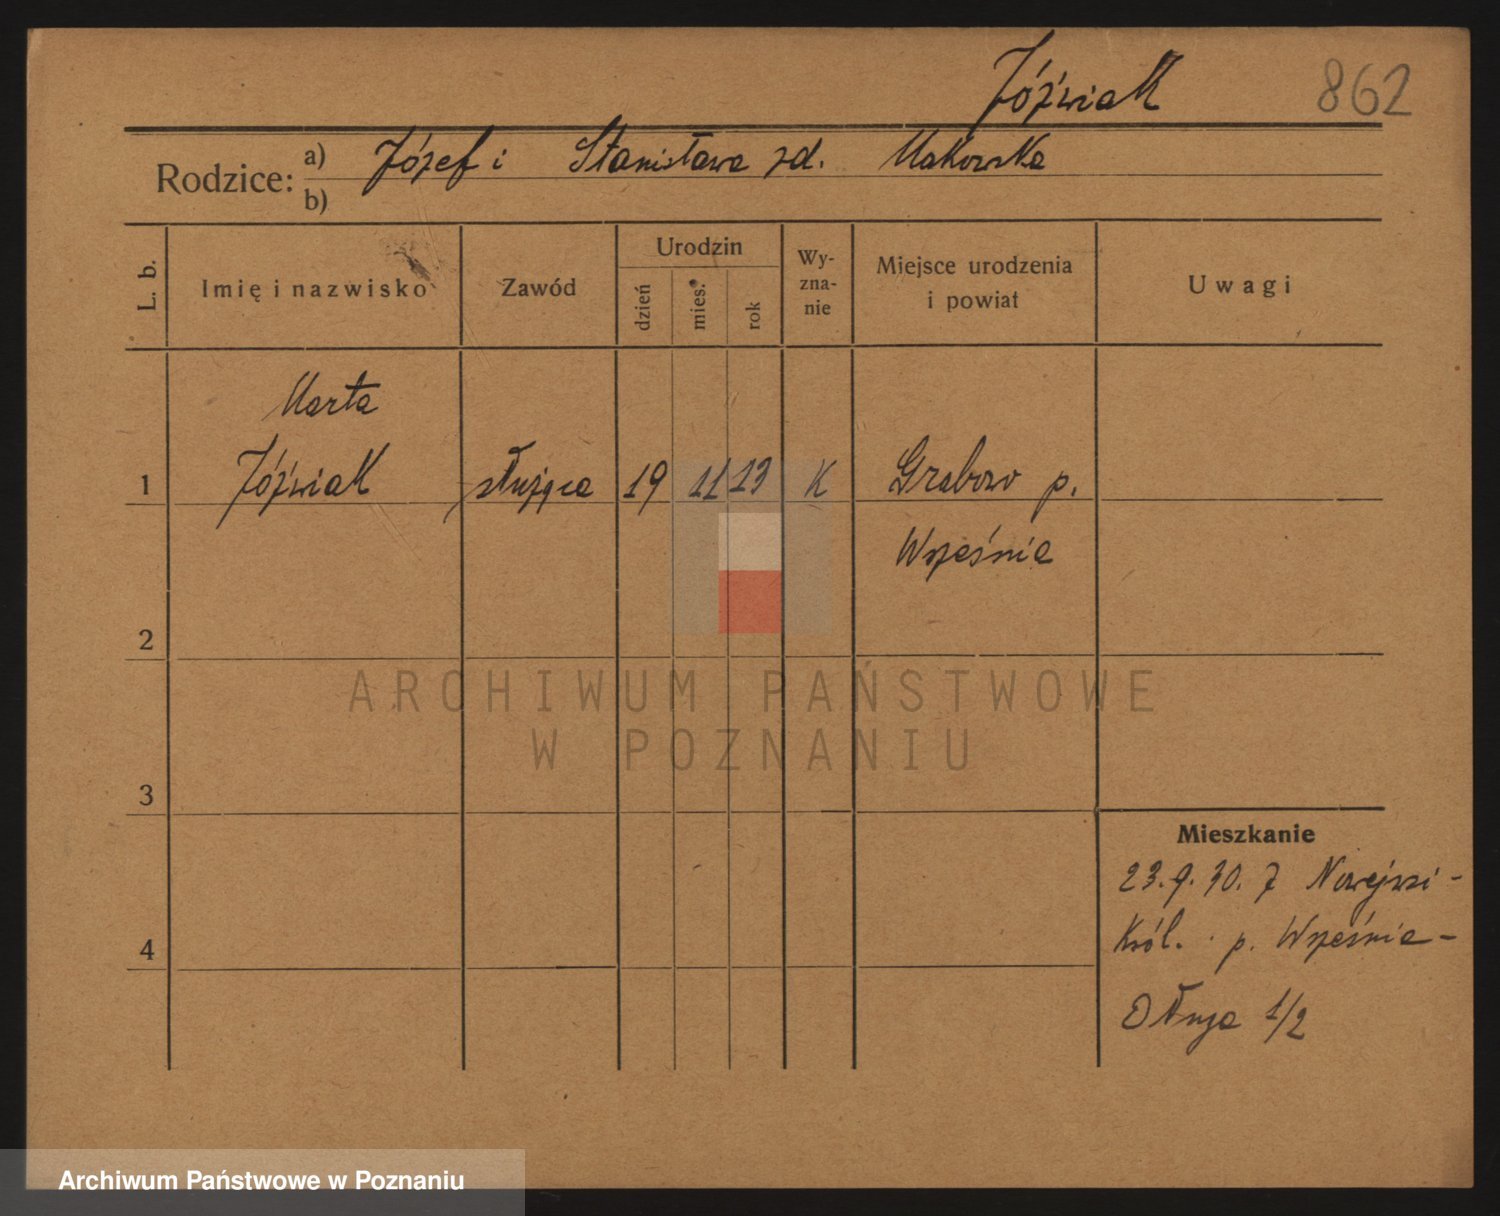 Jóźwiak 862
Rodzice: a) Józef i Stanisława zd. Makowska
b)
L. b. Imię i nazwisko Zawód Urodzin dzień mies. rok Wy-zna-nie Miejsce urodzenia i powiat Uwagi
Marta
1 Jóźwiak służąca 19 11 13 K Grabowo p.
Września
2
ARCHIWUM PAŃSTWOWE
W POZNANIU
3
Mieszkanie
23.9.30. z Nowejwsi-
Król. p. Września-
4
Długa 1/2
Archiwum Państwowe w Poznaniu